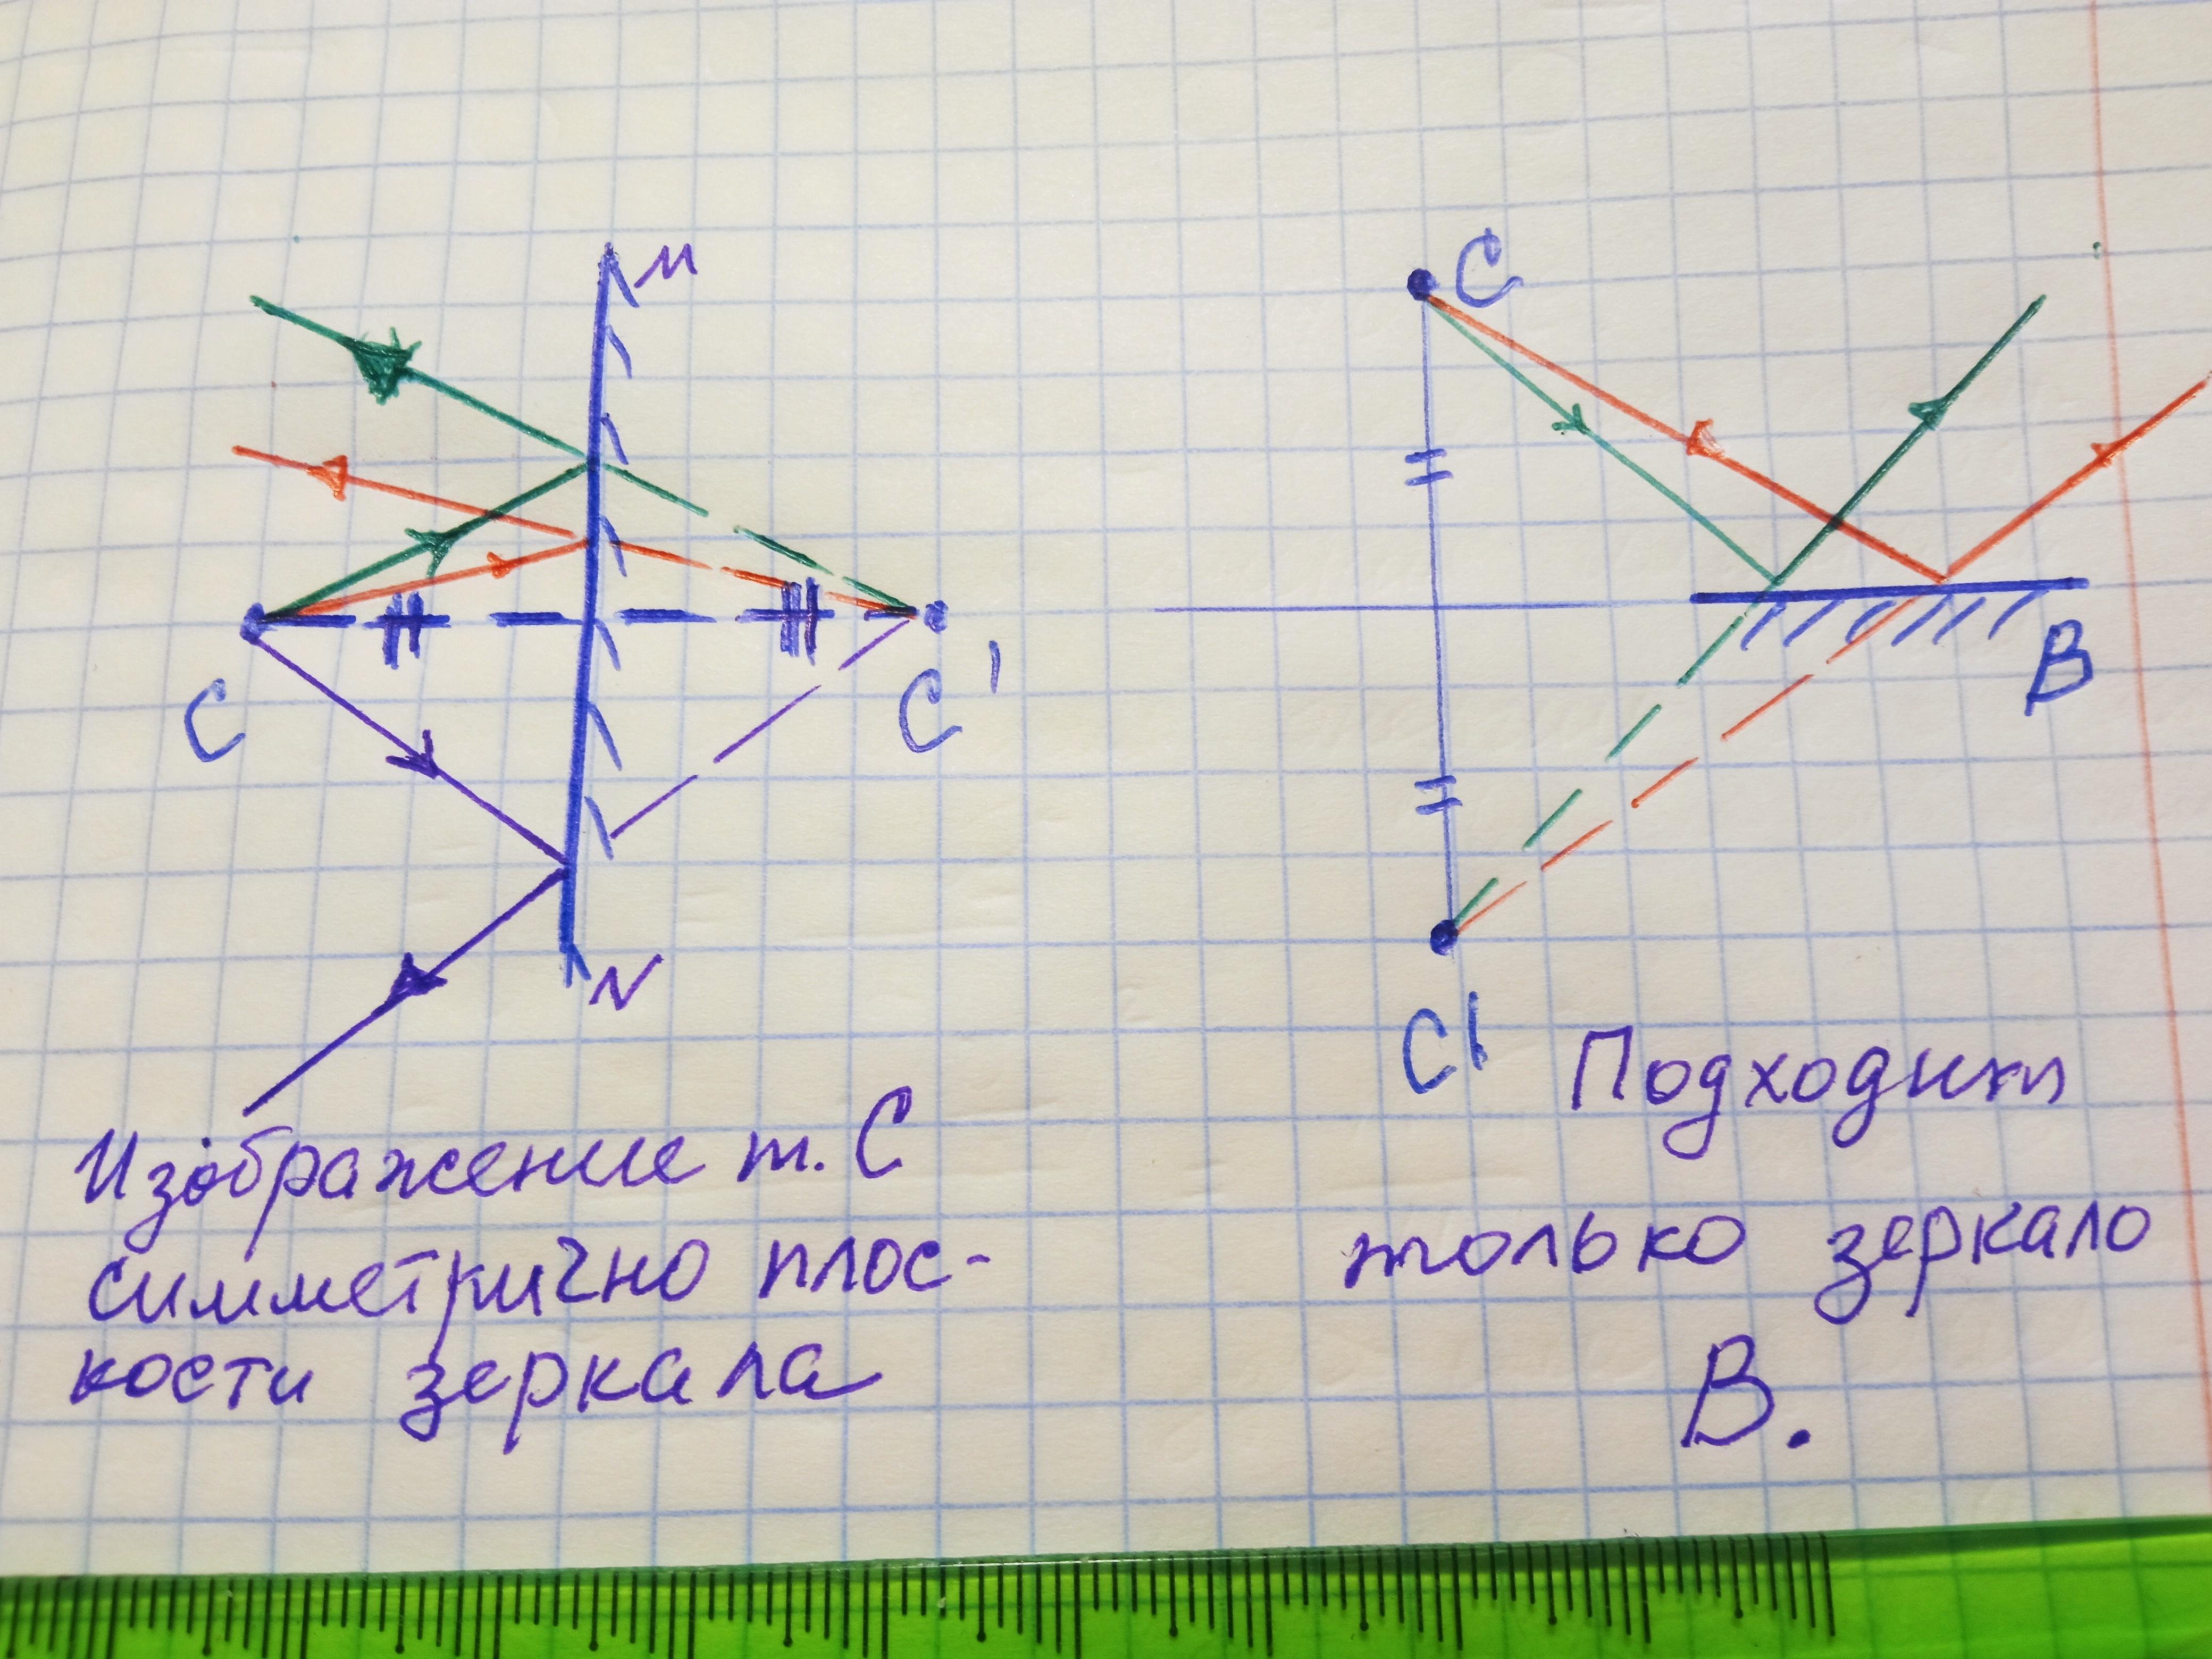 М
С
С'
N
Изображение т. С
симметрично плос-
кости зеркала
С
В
С'
Подходит
только зеркало
В.